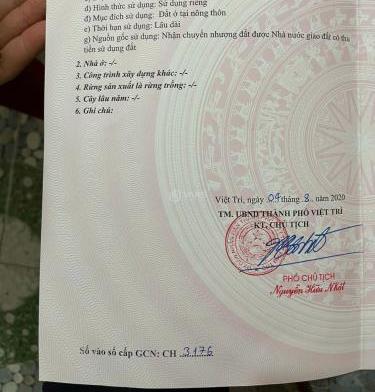 c) Hình thức sử dụng: Sử dụng riêng
d) Mục đích sử dụng: Đất ở tại nông thôn
e) Thời hạn sử dụng: Lâu dài
g) Nguồn gốc sử dụng: Nhận chuyển nhượng đất được Nhà nước giao đất có thu
tiền sử dụng đất
2. Nhà ở: -/-
3. Công trình xây dựng khác: -/-
4. Rừng sản xuất là rừng trồng: -/-
5. Cây lâu năm: -/-
6. Ghi chú:
Việt Trì, ngày 04 tháng 8. năm 2020
TM. UBND THÀNH PHỐ VIỆT TRÌ
KT. CHỦ TỊCH
PHÓ CHỦ TỊCH
Nguyễn Hữu Nhật
Số vào sổ cấp GCN: CH 3176